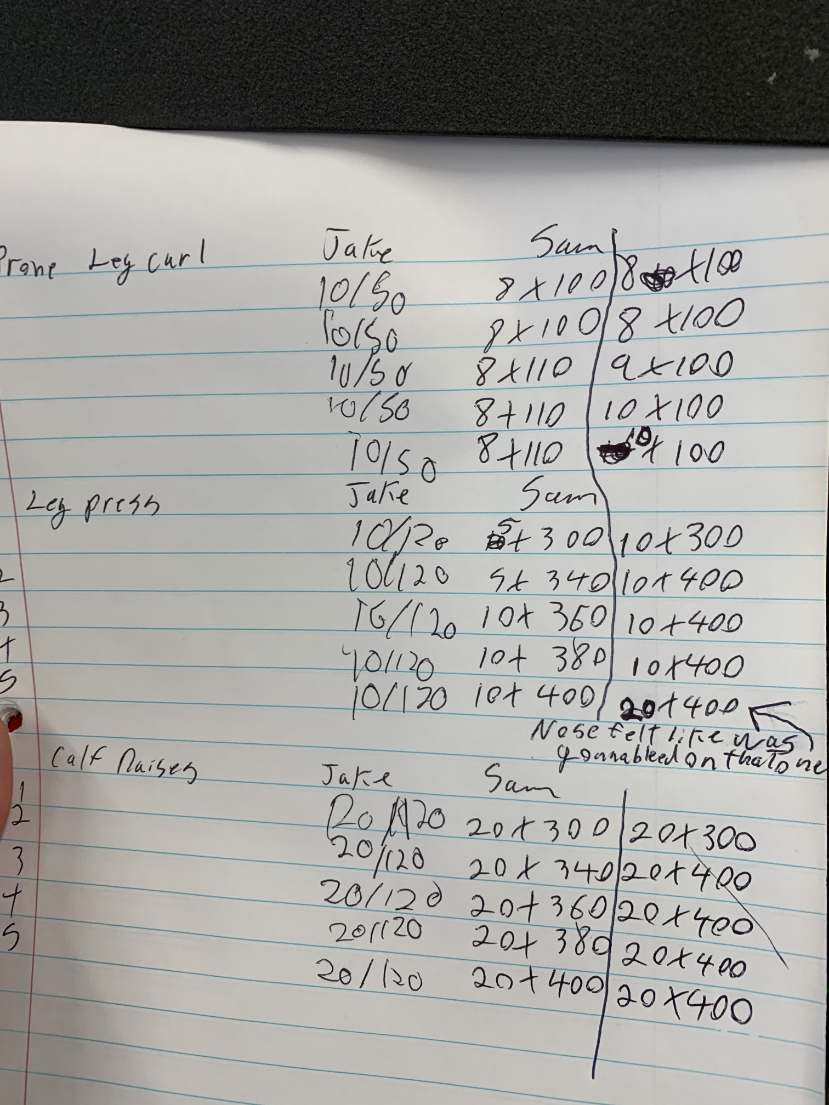 Prone Leg Curl Jake Sam
10/50 8 x 100 8 x 100
10/50 8 x 100 8 x 100
10/50 8 x 110 9 x 100
10/50 8 + 110 10 x 100
10/50 8 + 110 10 x 100
Leg press Jake Sam
10/120 5 + 300 10 + 300
2 10/120 5x 340 10 + 400
3 10/120 10 + 360 10 + 400
4 10/120 10 + 380 10 x 400
5 10/120 10 + 400 20 + 400
Nose felt like was
gonna bleed on that one
Calf Raises Jake Sam
1 20/120 20 x 300 20 x 300
2 20/120 20 x 340 20 + 400
3 20/120 20 + 360 20 x 400
4 20/120 20 + 380 20 x 400
5 20/120 20 + 400 20 x 400